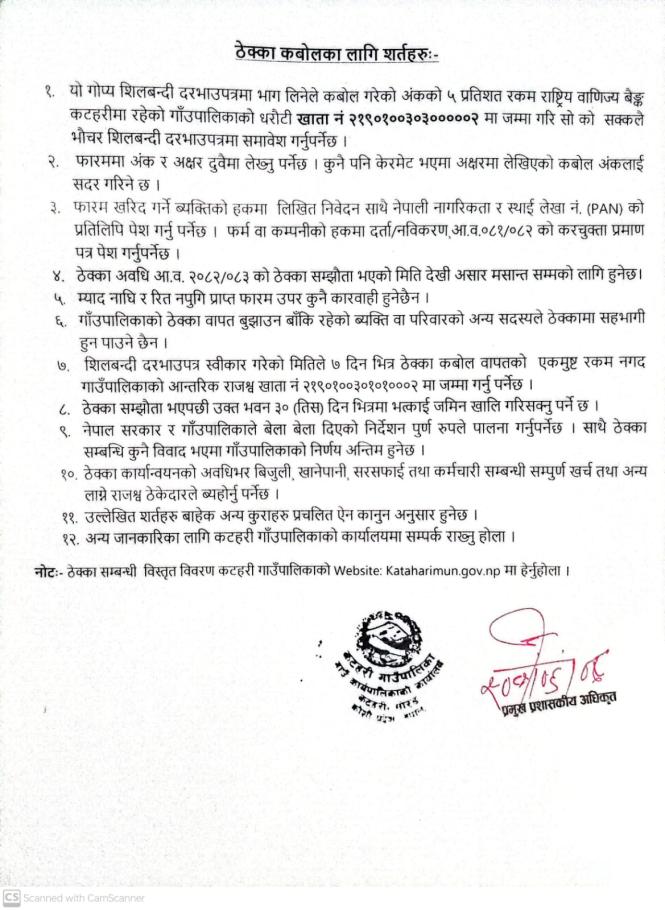 ठेक्का कबोलका लागि शर्तहरुः-
१. यो गोप्य शिलबन्दी दरभाउपत्रमा भाग लिनेले कबोल गरेको अंकको ५ प्रतिशत रकम राष्ट्रिय वाणिज्य बैङ्क
कटहरीमा रहेको गाँउपालिकाको धरौटी खाता नं २१९०१००३०३०००००२ मा जम्मा गरि सो को सक्कलै
भौचर शिलबन्दी दरभाउपत्रमा समावेश गर्नुपर्नेछ ।
२. फारममा अंक र अक्षर दुवैमा लेख्नु पर्नेछ । कुनै पनि केरमेट भएमा अक्षरमा लेखिएको कबोल अंकलाई
सदर गरिने छ ।
३. फारम खरिद गर्ने ब्यक्तिको हकमा लिखित निवेदन साथै नेपाली नागरिकता र स्थाई लेखा नं. (PAN) को
प्रतिलिपि पेश गर्नु पर्नेछ । फर्म वा कम्पनीको हकमा दर्ता/नविकरण,आ.व.०८१/०८२ को करचुक्ता प्रमाण
पत्र पेश गर्नुपर्नेछ ।
४. ठेक्का अवधि आ.व. २०८२/०८३ को ठेक्का सम्झौता भएको मिति देखी असार मसान्त सम्मको लागि हुनेछ।
५. म्याद नाघि र रित नपुगि प्राप्त फारम उपर कुनै कारवाही हुनेछैन ।
६. गाँउपालिकाको ठेक्का वापत बुझाउन बाँकि रहेको ब्यक्ति वा परिवारको अन्य सदस्यले ठेक्कामा सहभागी
हुन पाउने छैन ।
७. शिलबन्दी दरभाउपत्र स्वीकार गरेको मितिले ७ दिन भित्र ठेक्का कबोल वापतको एकमुष्ट रकम नगद
गाउँपालिकाको आन्तरिक राजश्व खाता नं २१९०१००३०१०१०००२ मा जम्मा गर्नु पर्नेछ ।
८. ठेक्का सम्झौता भएपछी उक्त भवन ३० (तिस) दिन भित्रमा भत्काई जमिन खालि गरिसक्नु पर्ने छ ।
९. नेपाल सरकार र गाउँपालिकाले बेला बेला दिएको निर्देशन पुर्ण रुपले पालना गर्नुपर्नेछ । साथै ठेक्का
सम्बन्धि कुनै विवाद भएमा गाउँपालिकाको निर्णय अन्तिम हुनेछ ।
१०. ठेक्का कार्यान्वयनको अवधिभर बिजुली, खानेपानी, सरसफाई तथा कर्मचारी सम्बन्धी सम्पुर्ण खर्च तथा अन्य
लाग्ने राजश्व ठेकेदारले ब्यहोर्नु पर्नेछ ।
११. उल्लेखित शर्तहरु बाहेक अन्य कुराहरु प्रचलित ऐन कानुन अनुसार हुनेछ ।
१२. अन्य जानकारिका लागि कटहरी गाँउपालिकाको कार्यालयमा सम्पर्क राख्नु होला ।
नोटः- ठेक्का सम्बन्धी विस्तृत विवरण कटहरी गाउँपालिकाको Website: Kataharimun.gov.np मा हेर्नुहोला ।
कटहरी गाउँपालिका
गाउँ कार्यपालिकाको कार्यालय
कटहरी, मोरङ
कोशी प्रदेश नेपाल
प्रमुख प्रशासकीय अधिकृत
CS Scanned with CamScanner